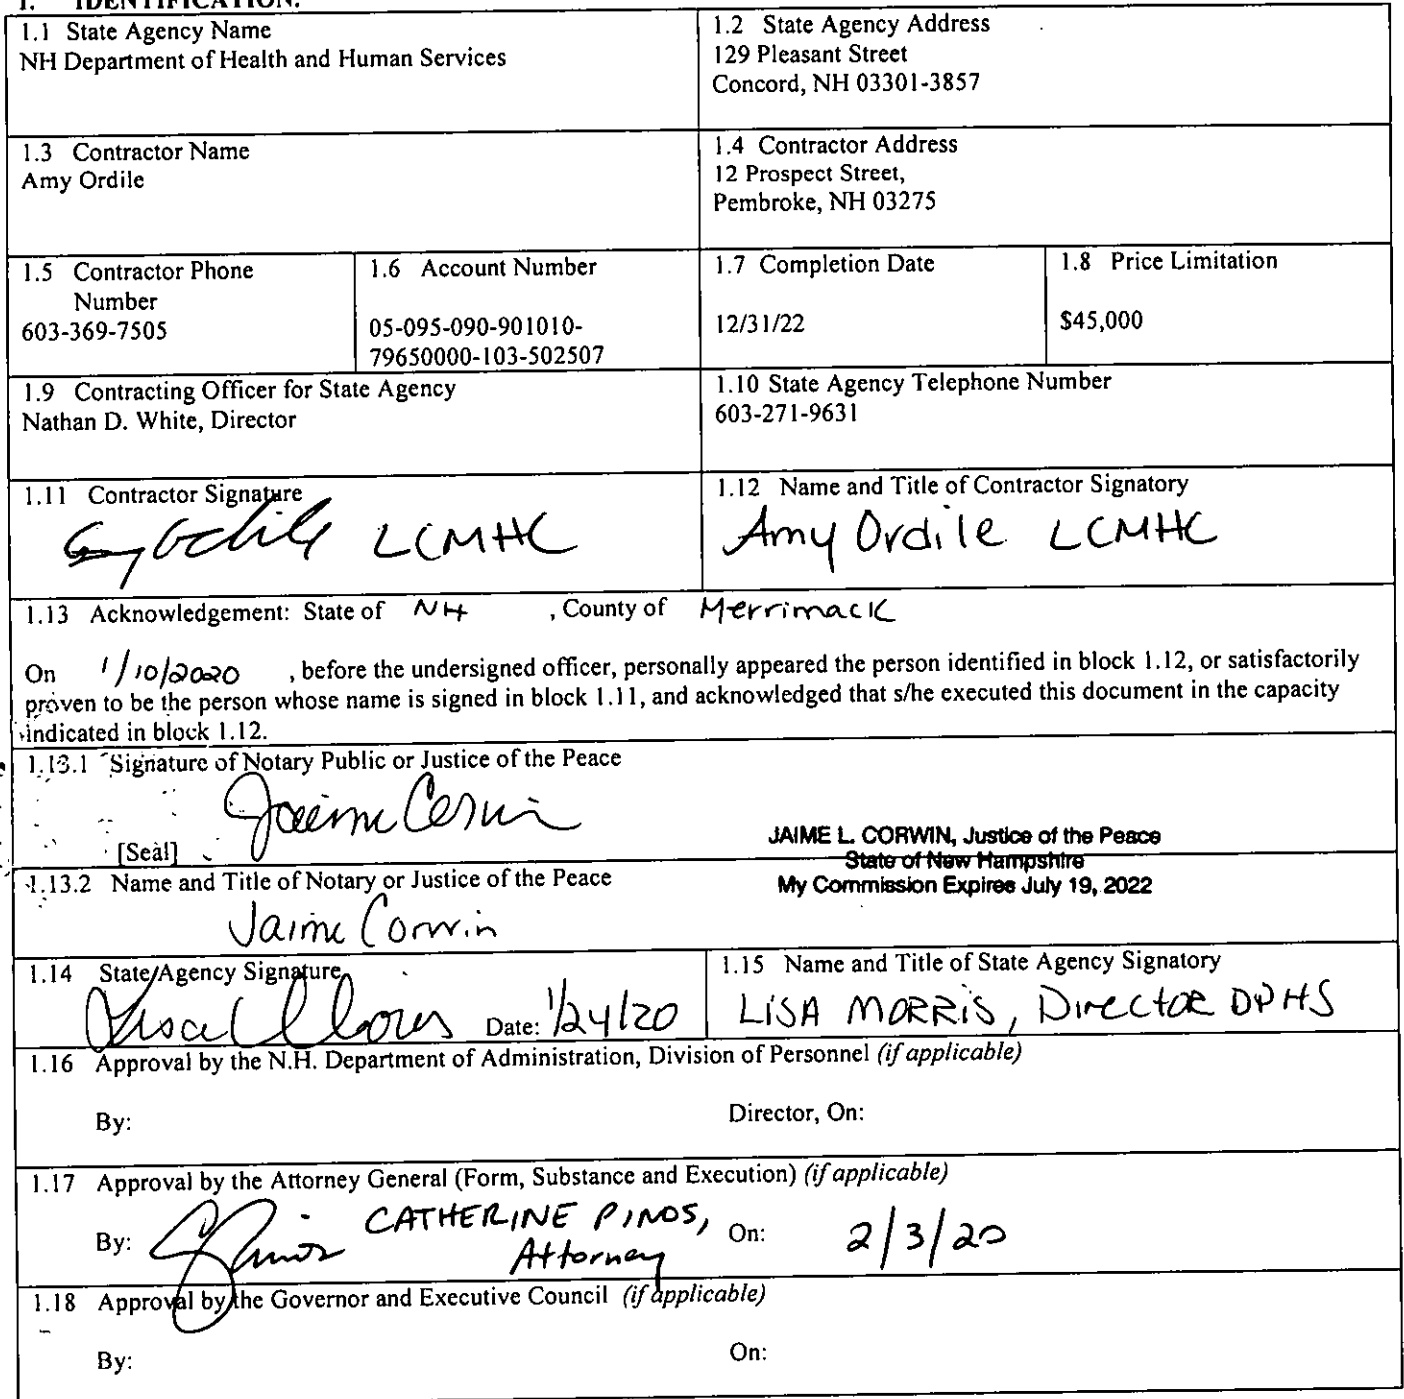 1. IDENTIFICATION.
1.1 State Agency Name
NH Department of Health and Human Services
1.2 State Agency Address
129 Pleasant Street
Concord, NH 03301-3857
1.3 Contractor Name
Amy Ordile
1.4 Contractor Address
12 Prospect Street,
Pembroke, NH 03275
1.5 Contractor Phone
Number
603-369-7505
1.6 Account Number
05-095-090-901010-
79650000-103-502507
1.7 Completion Date
12/31/22
1.8 Price Limitation
$45,000
1.9 Contracting Officer for State Agency
Nathan D. White, Director
1.10 State Agency Telephone Number
603-271-9631
1.11 Contractor Signature
LCMHC
1.12 Name and Title of Contractor Signatory
Amy Ordile LCMHC
1.13 Acknowledgement: State of NH , County of Merrimack
On 1/10/2020 , before the undersigned officer, personally appeared the person identified in block 1.12, or satisfactorily
proven to be the person whose name is signed in block 1.11, and acknowledged that s/he executed this document in the capacity
indicated in block 1.12.
1.13.1 Signature of Notary Public or Justice of the Peace
[Seal]
JAIME L. CORWIN, Justice of the Peace
State of New Hampshire
My Commission Expires July 19, 2022
1.13.2 Name and Title of Notary or Justice of the Peace
Jaime Corwin
1.14 State Agency Signature
Date: 1/24/20
1.15 Name and Title of State Agency Signatory
LISA MORRIS, Director DPHS
1.16 Approval by the N.H. Department of Administration, Division of Personnel (if applicable)
By: Director, On:
1.17 Approval by the Attorney General (Form, Substance and Execution) (if applicable)
By: CATHERINE PINOS, On: 2/3/20
Attorney
1.18 Approval by the Governor and Executive Council (if applicable)
By: On: